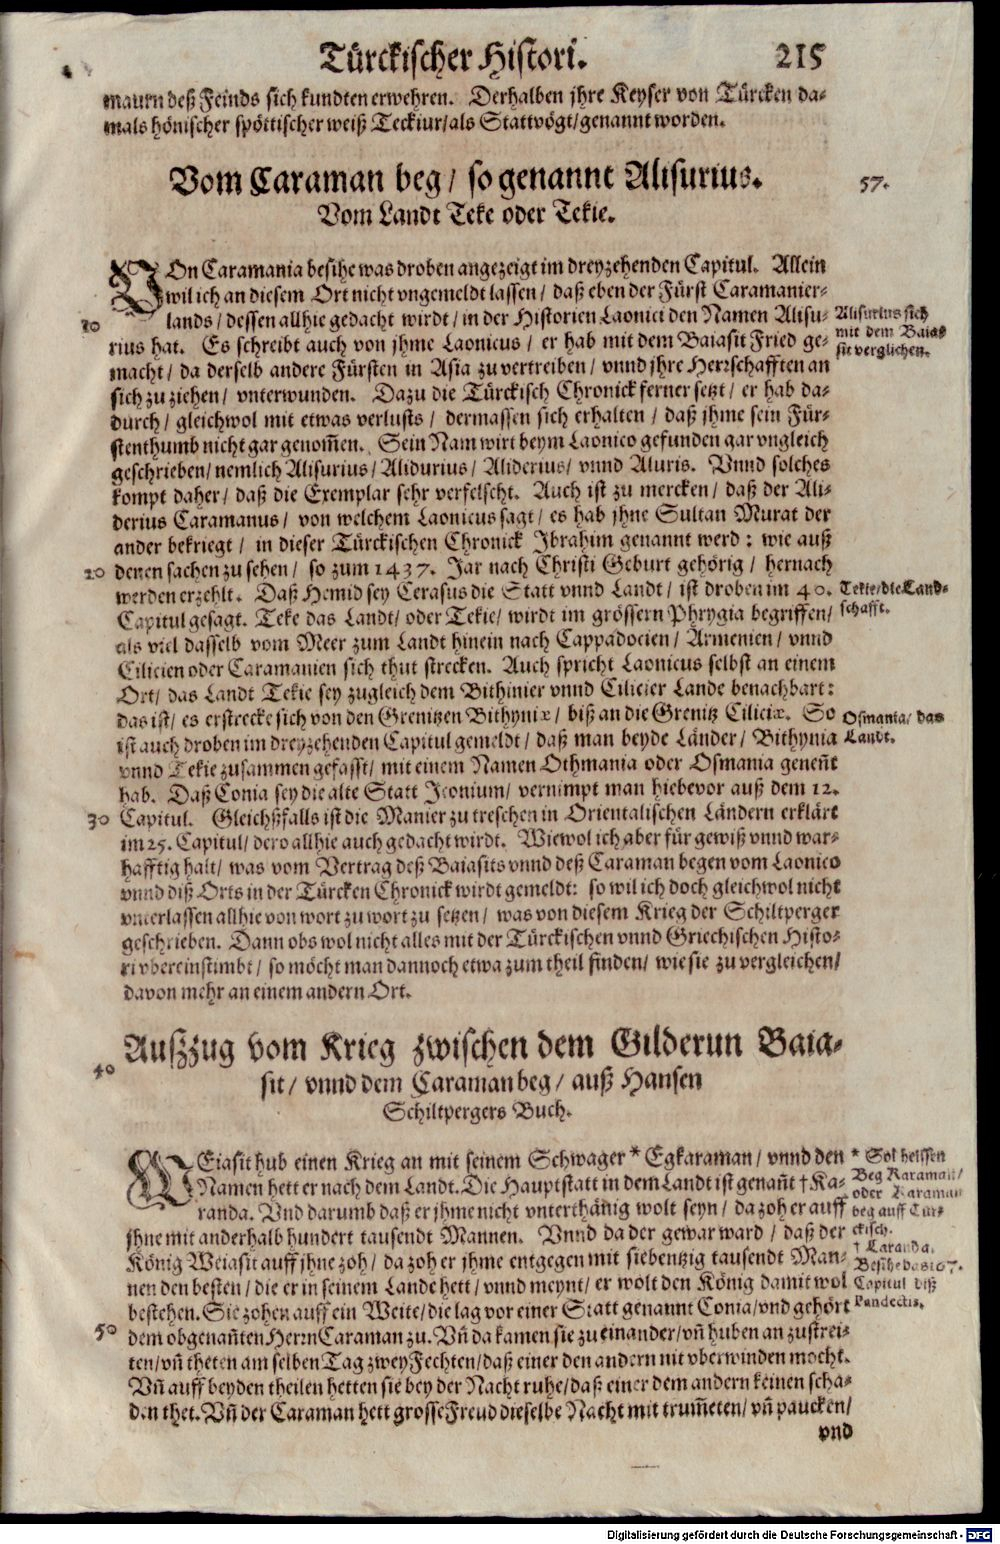 Türckischer Histori. 215
maurn deß Feinds sich kundten erwehren. Derhalben jhre Keyser von Türcken da-
mals hönischer spöttischer weiß Teckiur/als Stattvögt/genannt worden.
Vom Caraman beg/ so genannt Alisurius. 57.
Vom Landt Teke oder Tekie.
VOn Caramania besihe was droben angezeigt im dreyzehenden Capitul. Allein
wil ich an diesem Ort nicht vngemeldt lassen/ daß eben der Fürst Caramanier-
lands/ dessen allhie gedacht wirdt/ in der Historien Laonici den Namen Alisu-
10
Alisurius sich
mit dem Baia-
sit verglichen.
rius hat. Es schreibt auch von jhme Laonicus/ er hab mit dem Baiasit Fried ge-
macht/ da derselb andere Fürsten in Asia zu vertreiben/ vnnd jhre Herrschafften an
sich zu ziehen/ vnterwunden. Dazu die Türckisch Chronick ferner setzt/ er hab da-
durch/ gleichwol mit etwas verlusts/ dermassen sich erhalten/ daß jhme sein Für-
stenthumb nicht gar genom̃en. Sein Nam wirt beym Laonico gefunden gar vngleich
geschrieben/ nemlich Alisurius/ Alidurius/ Aliderius/ vnnd Aluris. Vnnd solches
kompt daher/ daß die Exemplar sehr verfelscht. Auch ist zu mercken/ daß der Ali-
derius Caramanus/ von welchem Laonicus sagt/ es hab jhne Sultan Murat der
ander bekriegt/ in dieser Türckischen Chronick Ibrahim genannt werd: wie auß
20 denen sachen zu sehen/ so zum 1437. Jar nach Christi Geburt gehörig/ hernach
werden erzehlt. Daß Hemid sey Cerasus die Statt vnnd Landt/ ist droben im 40.
Tekie/die Land-
schafft.
Capitul gesagt. Teke das Landt/ oder Tekie/ wirdt im grössern Phrygia begriffen/
als viel dasselb vom Meer zum Landt hinein nach Cappadocien/ Armenien/ vnnd
Cilicien oder Caramanien sich thut strecken. Auch spricht Laonicus selbst an einem
Ort/ das Landt Tekie sey zugleich dem Bithinier vnnd Cilicier Lande benachbart:
das ist/ es erstrecke sich von den Grenitzen Bithyniæ/ biß an die Grenitz Ciliciæ. So
Osmania/ das
Landt.
ist auch droben im dreyzehenden Capitul gemeldt/ daß man beyde Länder/ Bithynia
vnnd Tekie zusammen gefasst/ mit einem Namen Othmania oder Osmania geneñt
hab. Daß Conia sey die alte Statt Iconium/ vernimpt man hiebevor auß dem 12.
30 Capitul. Gleichßfalls ist die Manier zu treschen in Orientalischen Ländern erklärt
im 25. Capitul/ dero allhie auch gedacht wirdt. Wiewol ich aber für gewiß vnnd war-
hafftig halt/ was vom Vertrag deß Baiasits vnnd deß Caraman begen vom Laonico
vnnd diß Orts in der Türcken Chronick wirdt gemeldt: so wil ich doch gleichwol nicht
vnterlassen allhie von wort zu wort zu setzen/ was von diesem Krieg der Schiltperger
geschrieben. Dann obs wol nicht alles mit der Türckischen vnnd Griechischen Histo-
ri vbereinstimbt/ so möcht man dannoch etwa zum theil finden/ wie sie zu vergleichen/
davon mehr an einem andern Ort.
Außzug vom Krieg zwischen dem Gilderun Baia-
40
sit/ vnnd dem Caraman beg/ auß Hansen
Schiltpergers Buch.
WEiasit hub einen Krieg an mit seinem Schwager * Egkaraman/ vnnd den
Namen hett er nach dem Landt. Die Hauptstatt in dem Landt ist genañt † Ka-
randa. Vnd darumb daß er jhme nicht vnterthänig wolt seyn/ da zoh er auff
* Sol heissen
Beg Karaman/
oder Karaman
beg auff Tür-
ckisch.
† Caranda.
Besihe das 167.
Capitul diß
Pandectis.
jhne mit anderhalb hundert tausendt Mannen. Vnnd da der gewar ward/ daß der
König Weiasit auff jhne zoh/ da zoh er jhme entgegen mit siebentzig tausendt Man-
nen den besten/ die er in seinem Lande hett/ vnnd meynt/ er wolt den König damit wol
bestehen. Sie zohen auff ein Weite/ die lag vor einer Statt genannt Conia/ vnd gehört
50 dem obgenañten Herrn Caraman zu. Vñ da kamen sie zu einander/ vñ huben an zu strei-
ten/ vñ theten am selben Tag zwey Fechten/ daß einer den andern nit vberwinden mocht.
Vñ auff beyden theilen hetten sie bey der Nacht ruhe/ daß einer dem andern keinen scha-
den thet. Vñ der Caraman hett grosse Freud dieselbe Nacht mit trum̃eten/ vñ paucken/
vnd
Digitalisierung gefördert durch die Deutsche Forschungsgemeinschaft - DFG